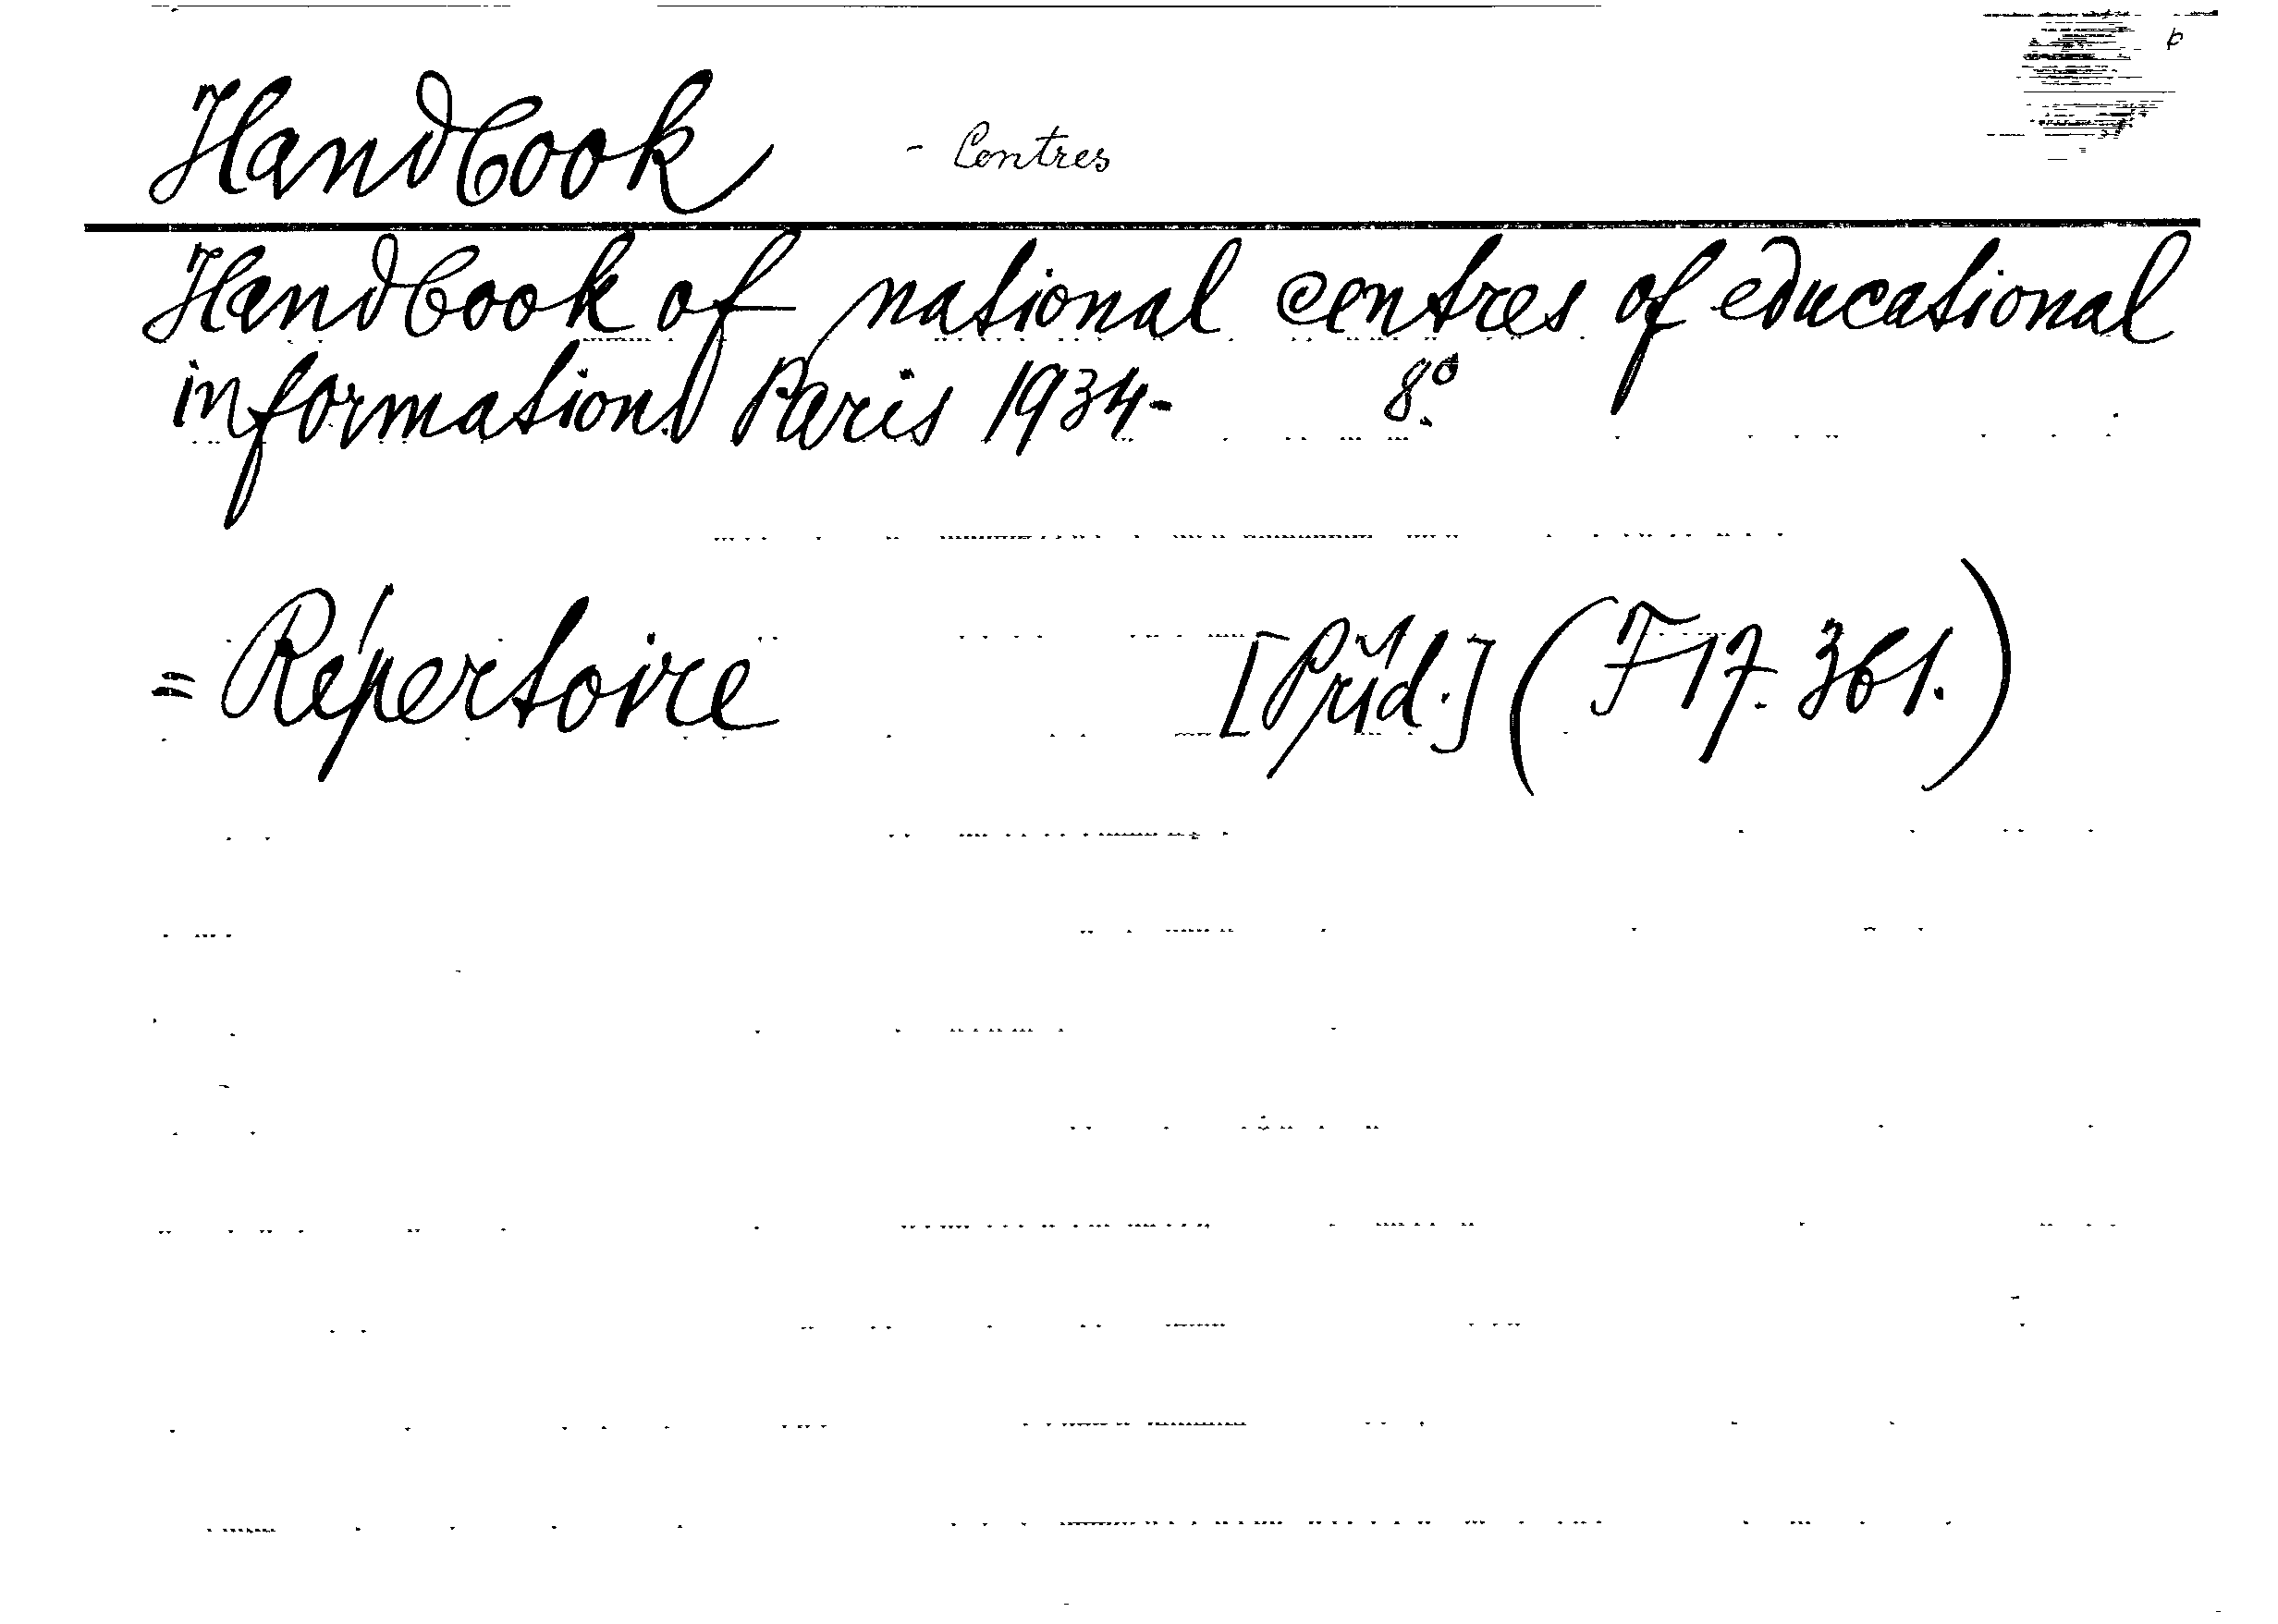 Handbook - Centres
Handbook of national centres of educational
information. Paris 1934- 8º.
= Répertoire [Příd.] (F 17. 361.)